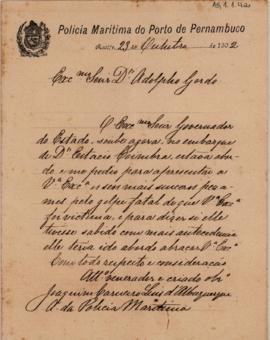 Policia Maritima do Porto de Pernambuco
Recife, 23 de Outubro de 1902
Exc.mo Snr. Dr. Adolpho Gordo
O Exc.mo Snr Governador
do Estado, soube agora, no embarque
de Dr. Estacio Coimbra, estava abor-
do e me pedio para apresentar a
V.a Exc.a e seus mais sinceros peza-
mes pelo golpe fatal de que V.a Exc.a
foi victima, e para dizer si elle
tivesse sabido com mais antecedencia
elle teria ido abordo abraçar V.a Exc.a
Com todo respeito e consideração
Att.o venerador e criado obr.o
Joaquim Carneiro Lins d'Albuquerque
da Policia Maritima